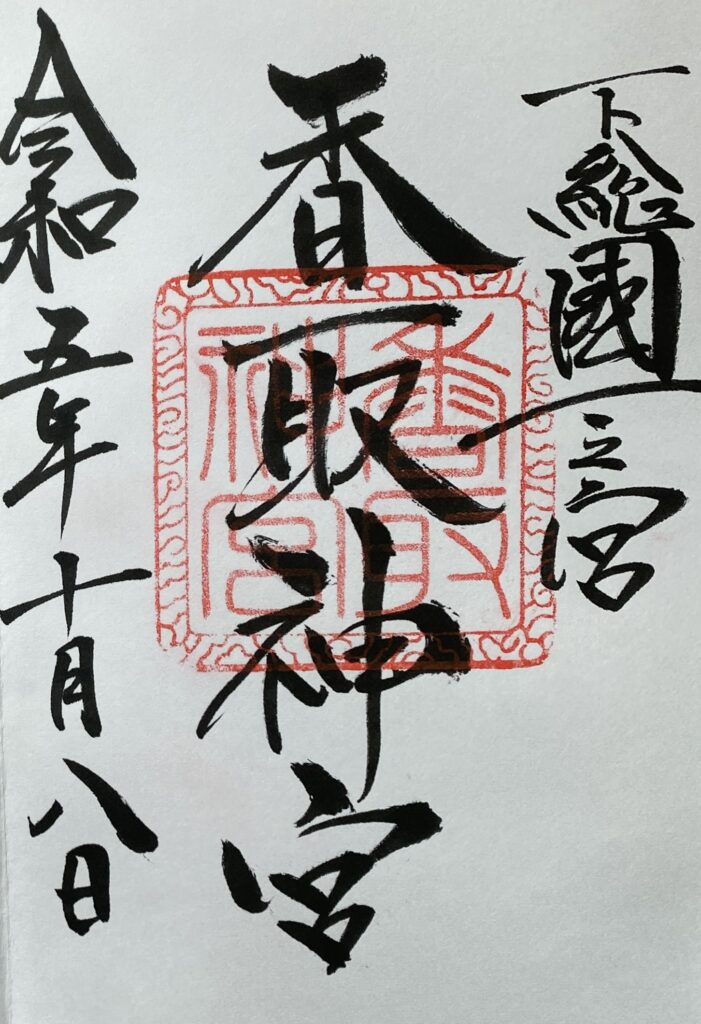 下総國一之宮
香取神宮
令和五年十月八日
香取
神宮